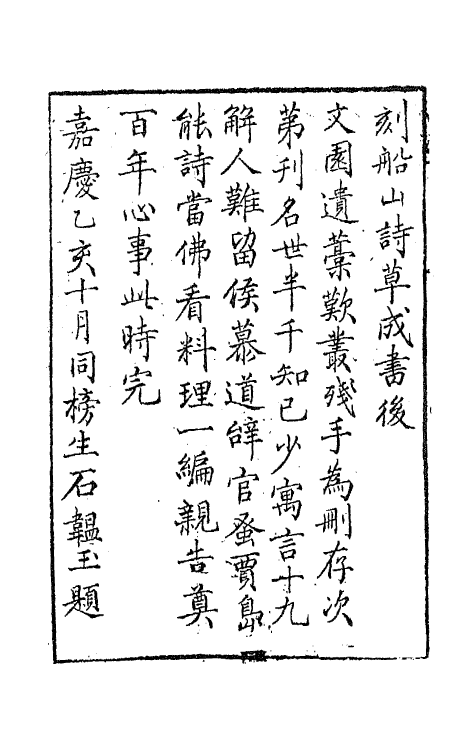 刻船山詩草成書後
文園遺藁歎叢殘手為刪存次
第刊名世半千知己少寓言十九
解人難留侯慕道辤官蚤賈島
能詩當佛看料理一編親告奠
百年心事此時完
嘉慶乙亥十月同榜生石韞玉題